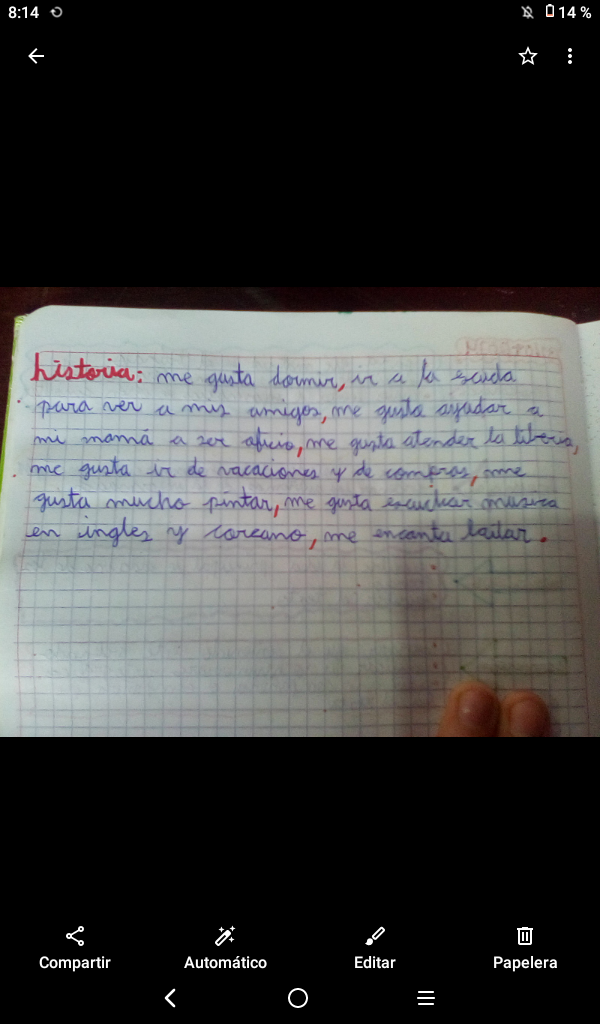 8:14
14 %
historia: me gusta dormir, ir a la escuela
para ver a mis amigos, me gusta ayudar a
mi mamá a ser oficio, me gusta atender la
me gusta ir de vacaciones y de compras, me
gusta mucho pintar, me gusta escuchar musica
en ingles y coreano, me encanta bailar.
Compartir
Automático
Editar
Papelera